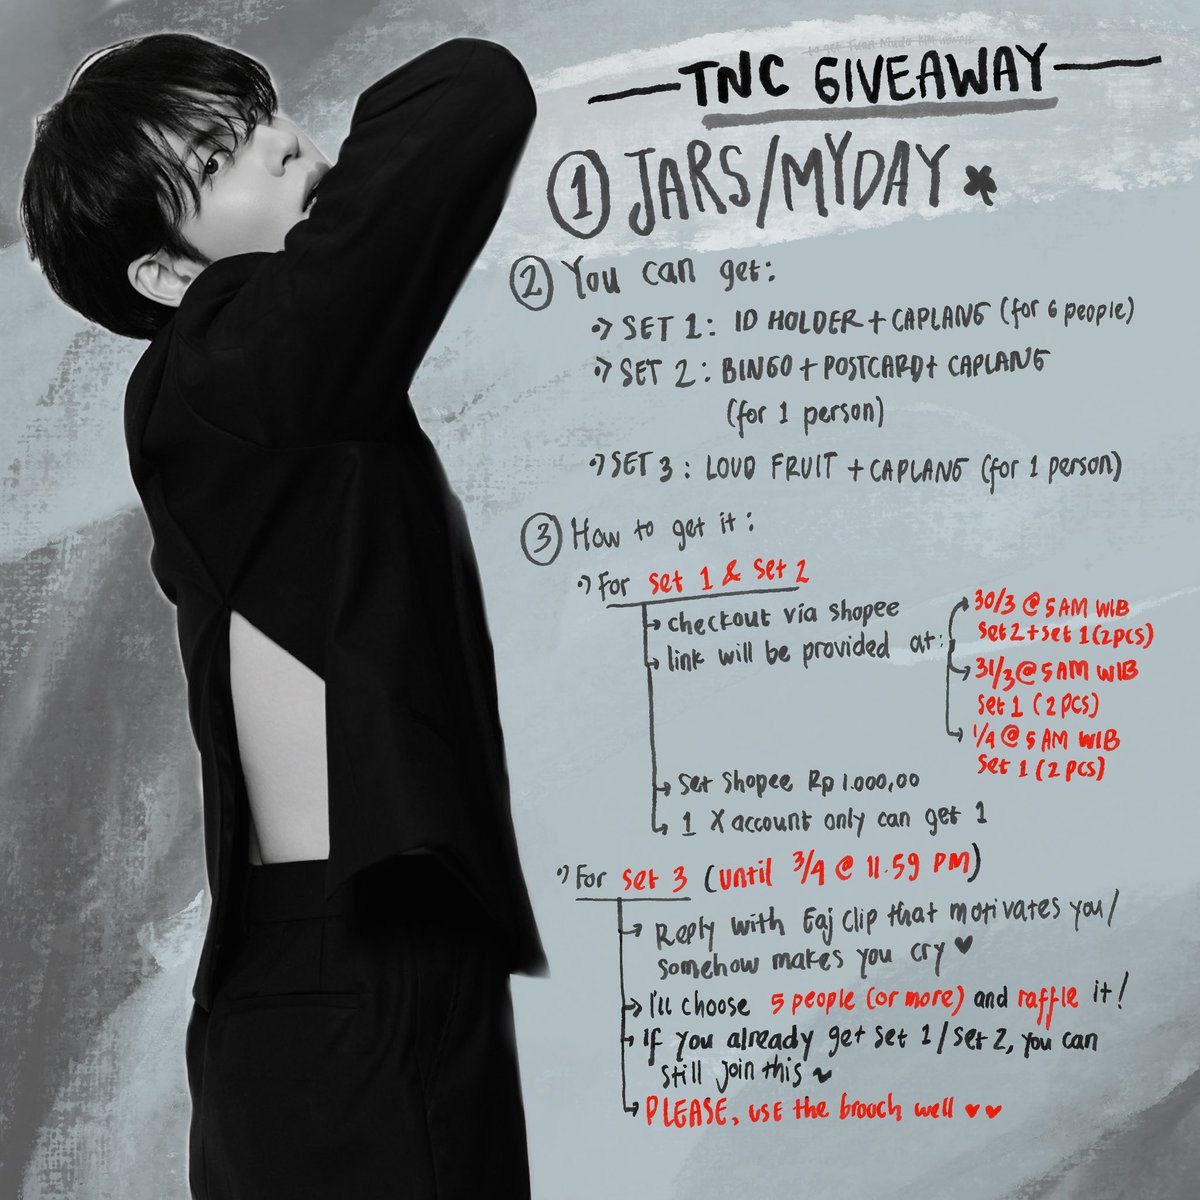 to get Tuan Muda
TNC GIVEAWAY
1 JARS/MYDAY
2 You can get:
SET 1: ID HOLDER + CAPLANG (for 6 people)
SET 2: BINGO + POSTCARD + CAPLANG
(for 1 person)
SET 3: LOUD FRUIT + CAPLANG (for 1 person)
3 How to get it:
For set 1 & set 2
checkout via shopee
link will be provided at:
30/3 @ 5 AM WIB
set 2 + set 1 (2 pcs)
31/3 @ 5 AM WIB
set 1 (2 pcs)
1/4 @ 5 AM WIB
set 1 (2 pcs)
set shopee Rp 1.000,00
1 X account only can get 1
For set 3 (until 3/4 @ 11.59 PM)
Reply with Eaj clip that motivates you/
somehow makes you cry ♥
I'll choose 5 people (or more) and raffle it!
If you already get set 1/set 2, you can
still join this ~
PLEASE, USE the brooch well ♥♥